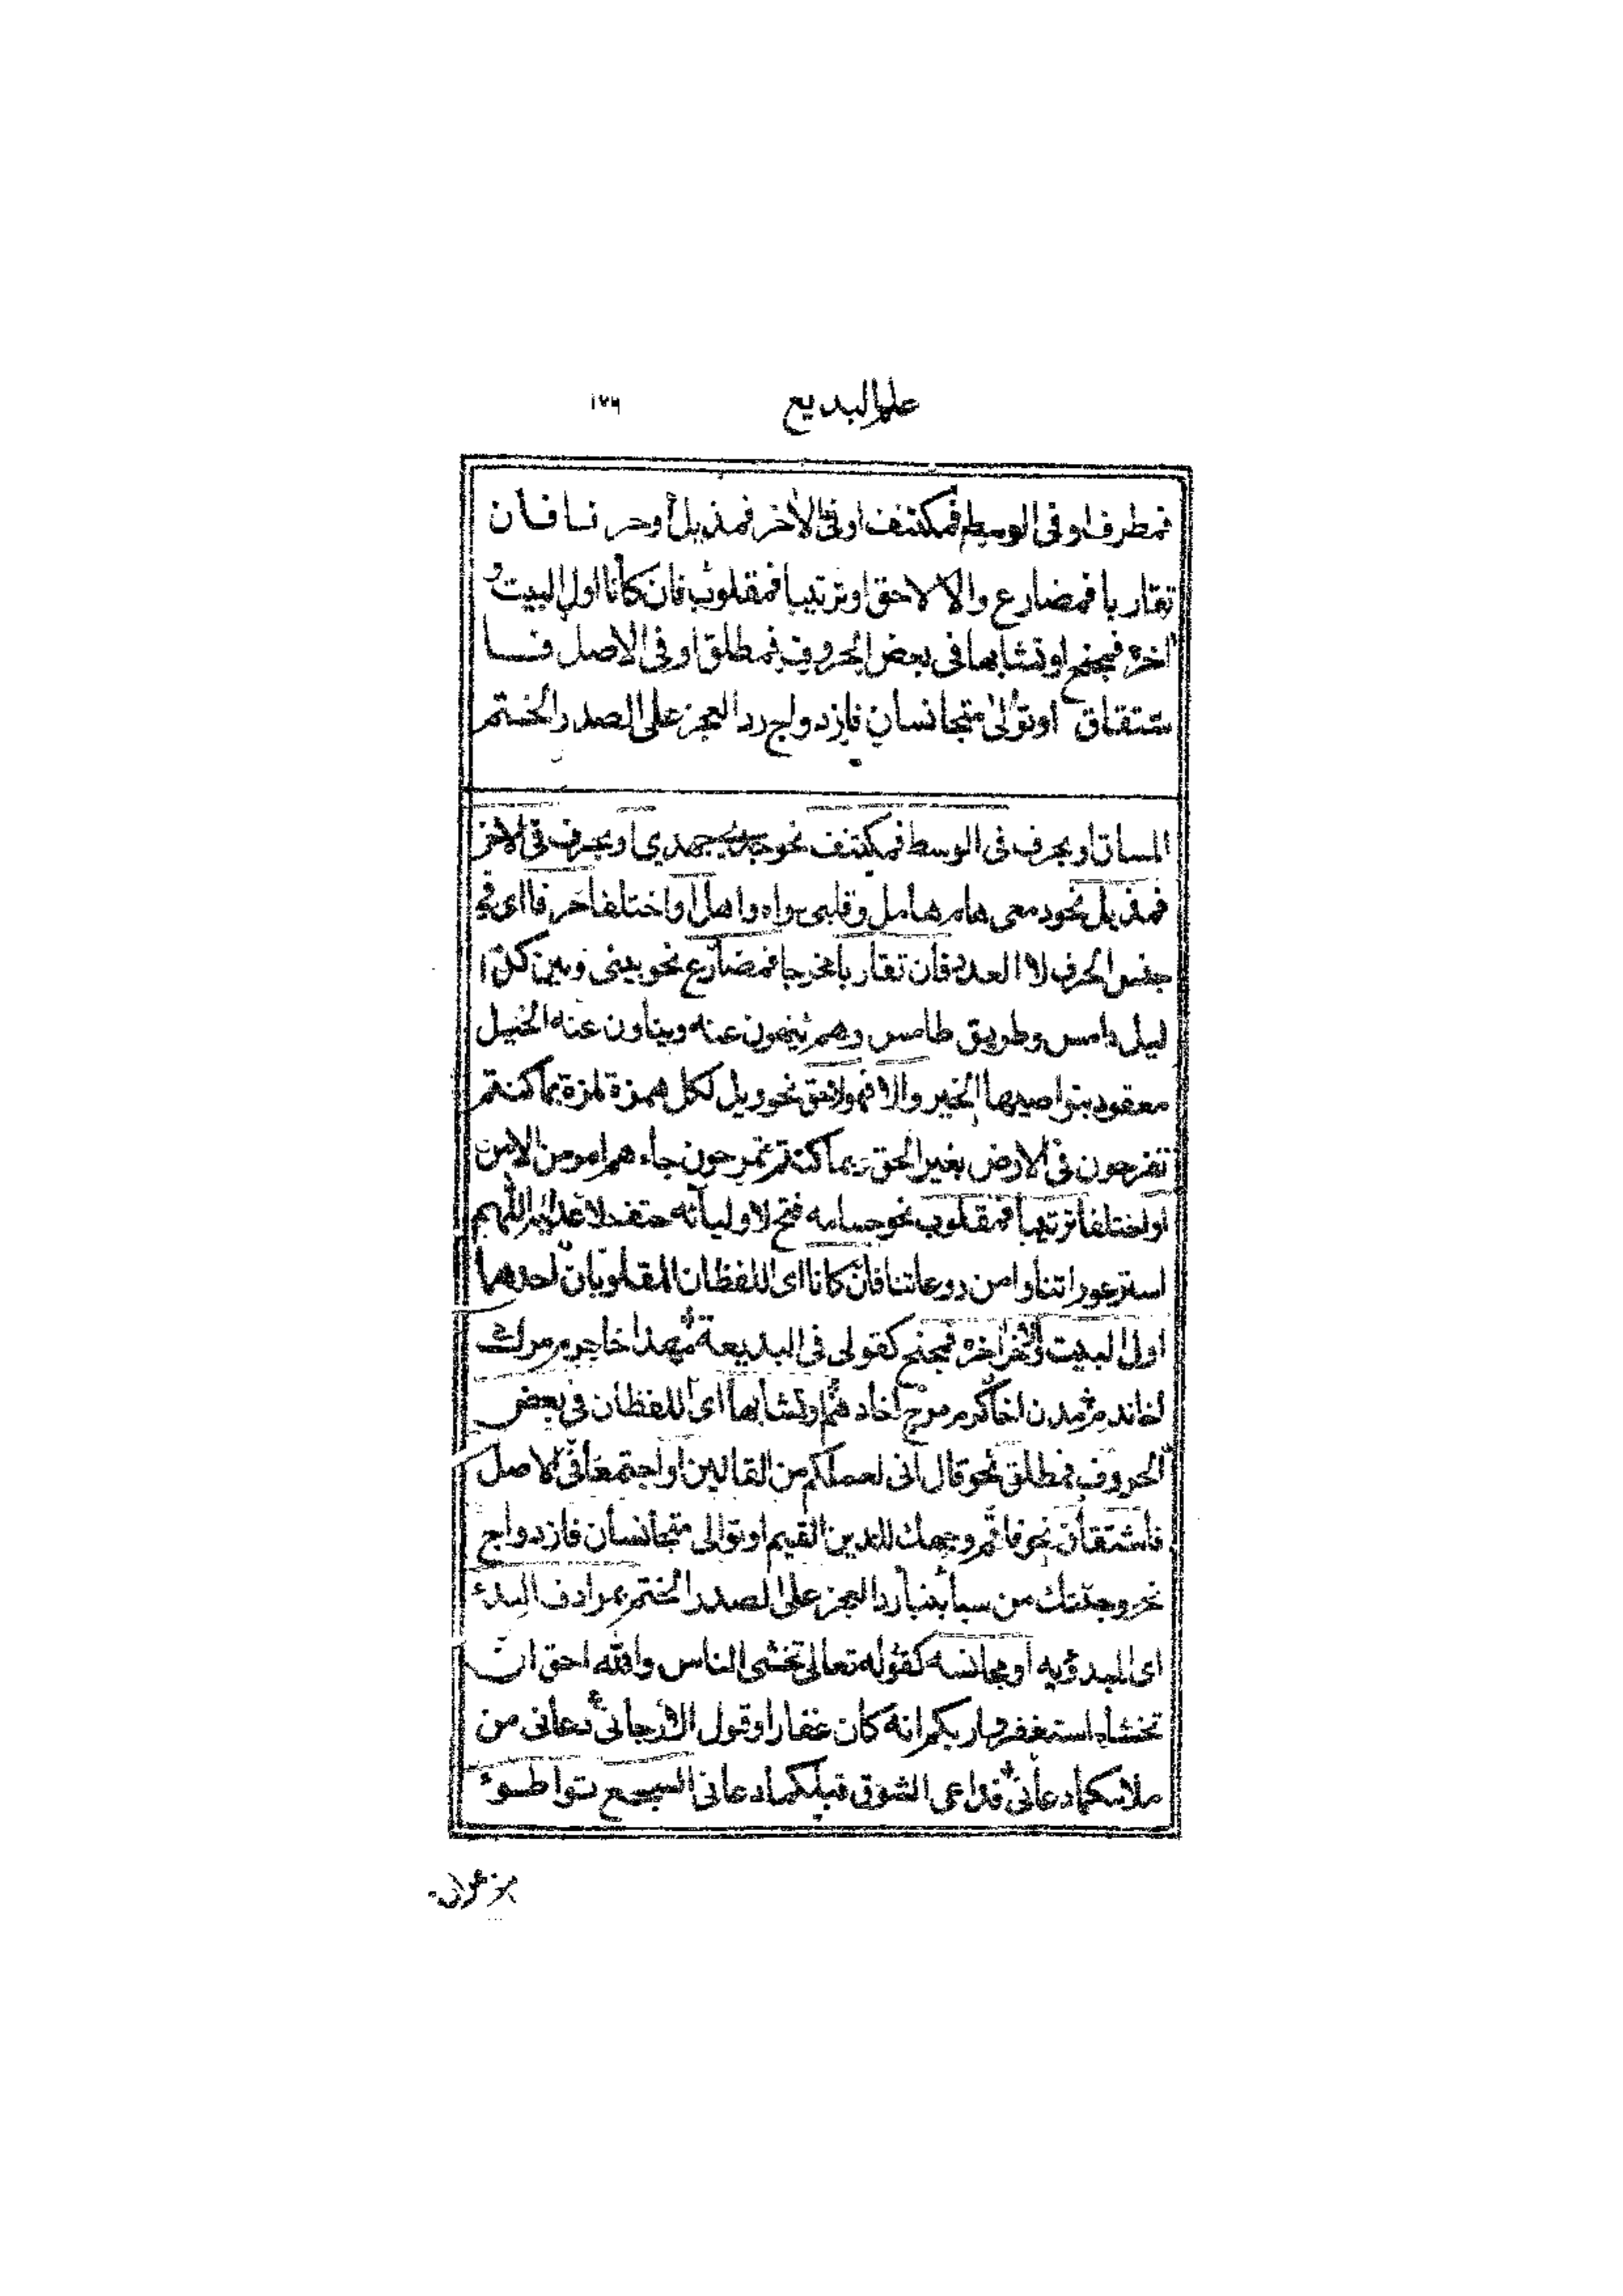 علم البديع ١٧٦
فمطرف او فى الوسط فمكتنف او فى الاخر فمذيل أو حر نا فان
تقاربا فمضارع والا لاحق او ترتيبا فمقلوب فان كانا اول البيت و
اخره فمجنح او تشابها فى بعض الحروف فمطلق او فى الاصل فا
شتقاق او توالى متجانسان فازدواج رد العجز على الصدر الختم
المساق او بحرف فى الوسط فمكتنف نحو جدى جهدي او بحرف فى الاخر
فمذيل نحو دمعى هام هامل وقلبى واه واهل او اختلفا حرفا اى فى
جنس الحرف لا العدد فان تقاربا مخرجا فمضارع نحو بينى وبين كنى
ليل دامس وطريق طامس وهم ينهون عنه وينأون عنه الخيل
معقود بنواصيها الخير والا فهو لاحق نحو ويل لكل همزة لمزة بما كنتم
تفرحون فى الارض بغير الحق وبما كنتم تمرحون جاءهم امر من الامن
او اختلفا ترتيبا فمقلوب نحو حسامه فتح لاوليائه حتف لاعدائه اللهم
استر عوراتنا وامن روعاتنا فان كانا اى اللفظان المقلوبان احدهما
اول البيت والاخر اخره فمجنح كقولى فى البديعة
او تشابها اى اللفظان فى بعض
الحروف فمطلق نحو قال انى لعملكم من القالين او اجتمعا فى الاصل
فاشتقاق نحو فاقم وجهك للدين القيم او توالى متجانسان فازدواج
نحو وجئتك من سبأ بنبأ رد العجز على الصدر الختم بمرادف البدء
اى المبدؤ به او مجانسه كقوله تعالى تخشى الناس والله احق ان
تخشاه استغفروا ربكم انه كان غفارا وقول الارجانى دعانى من
ملامكما دعانى فداعى الشوق قبلكما دعانى السجع تواطؤ